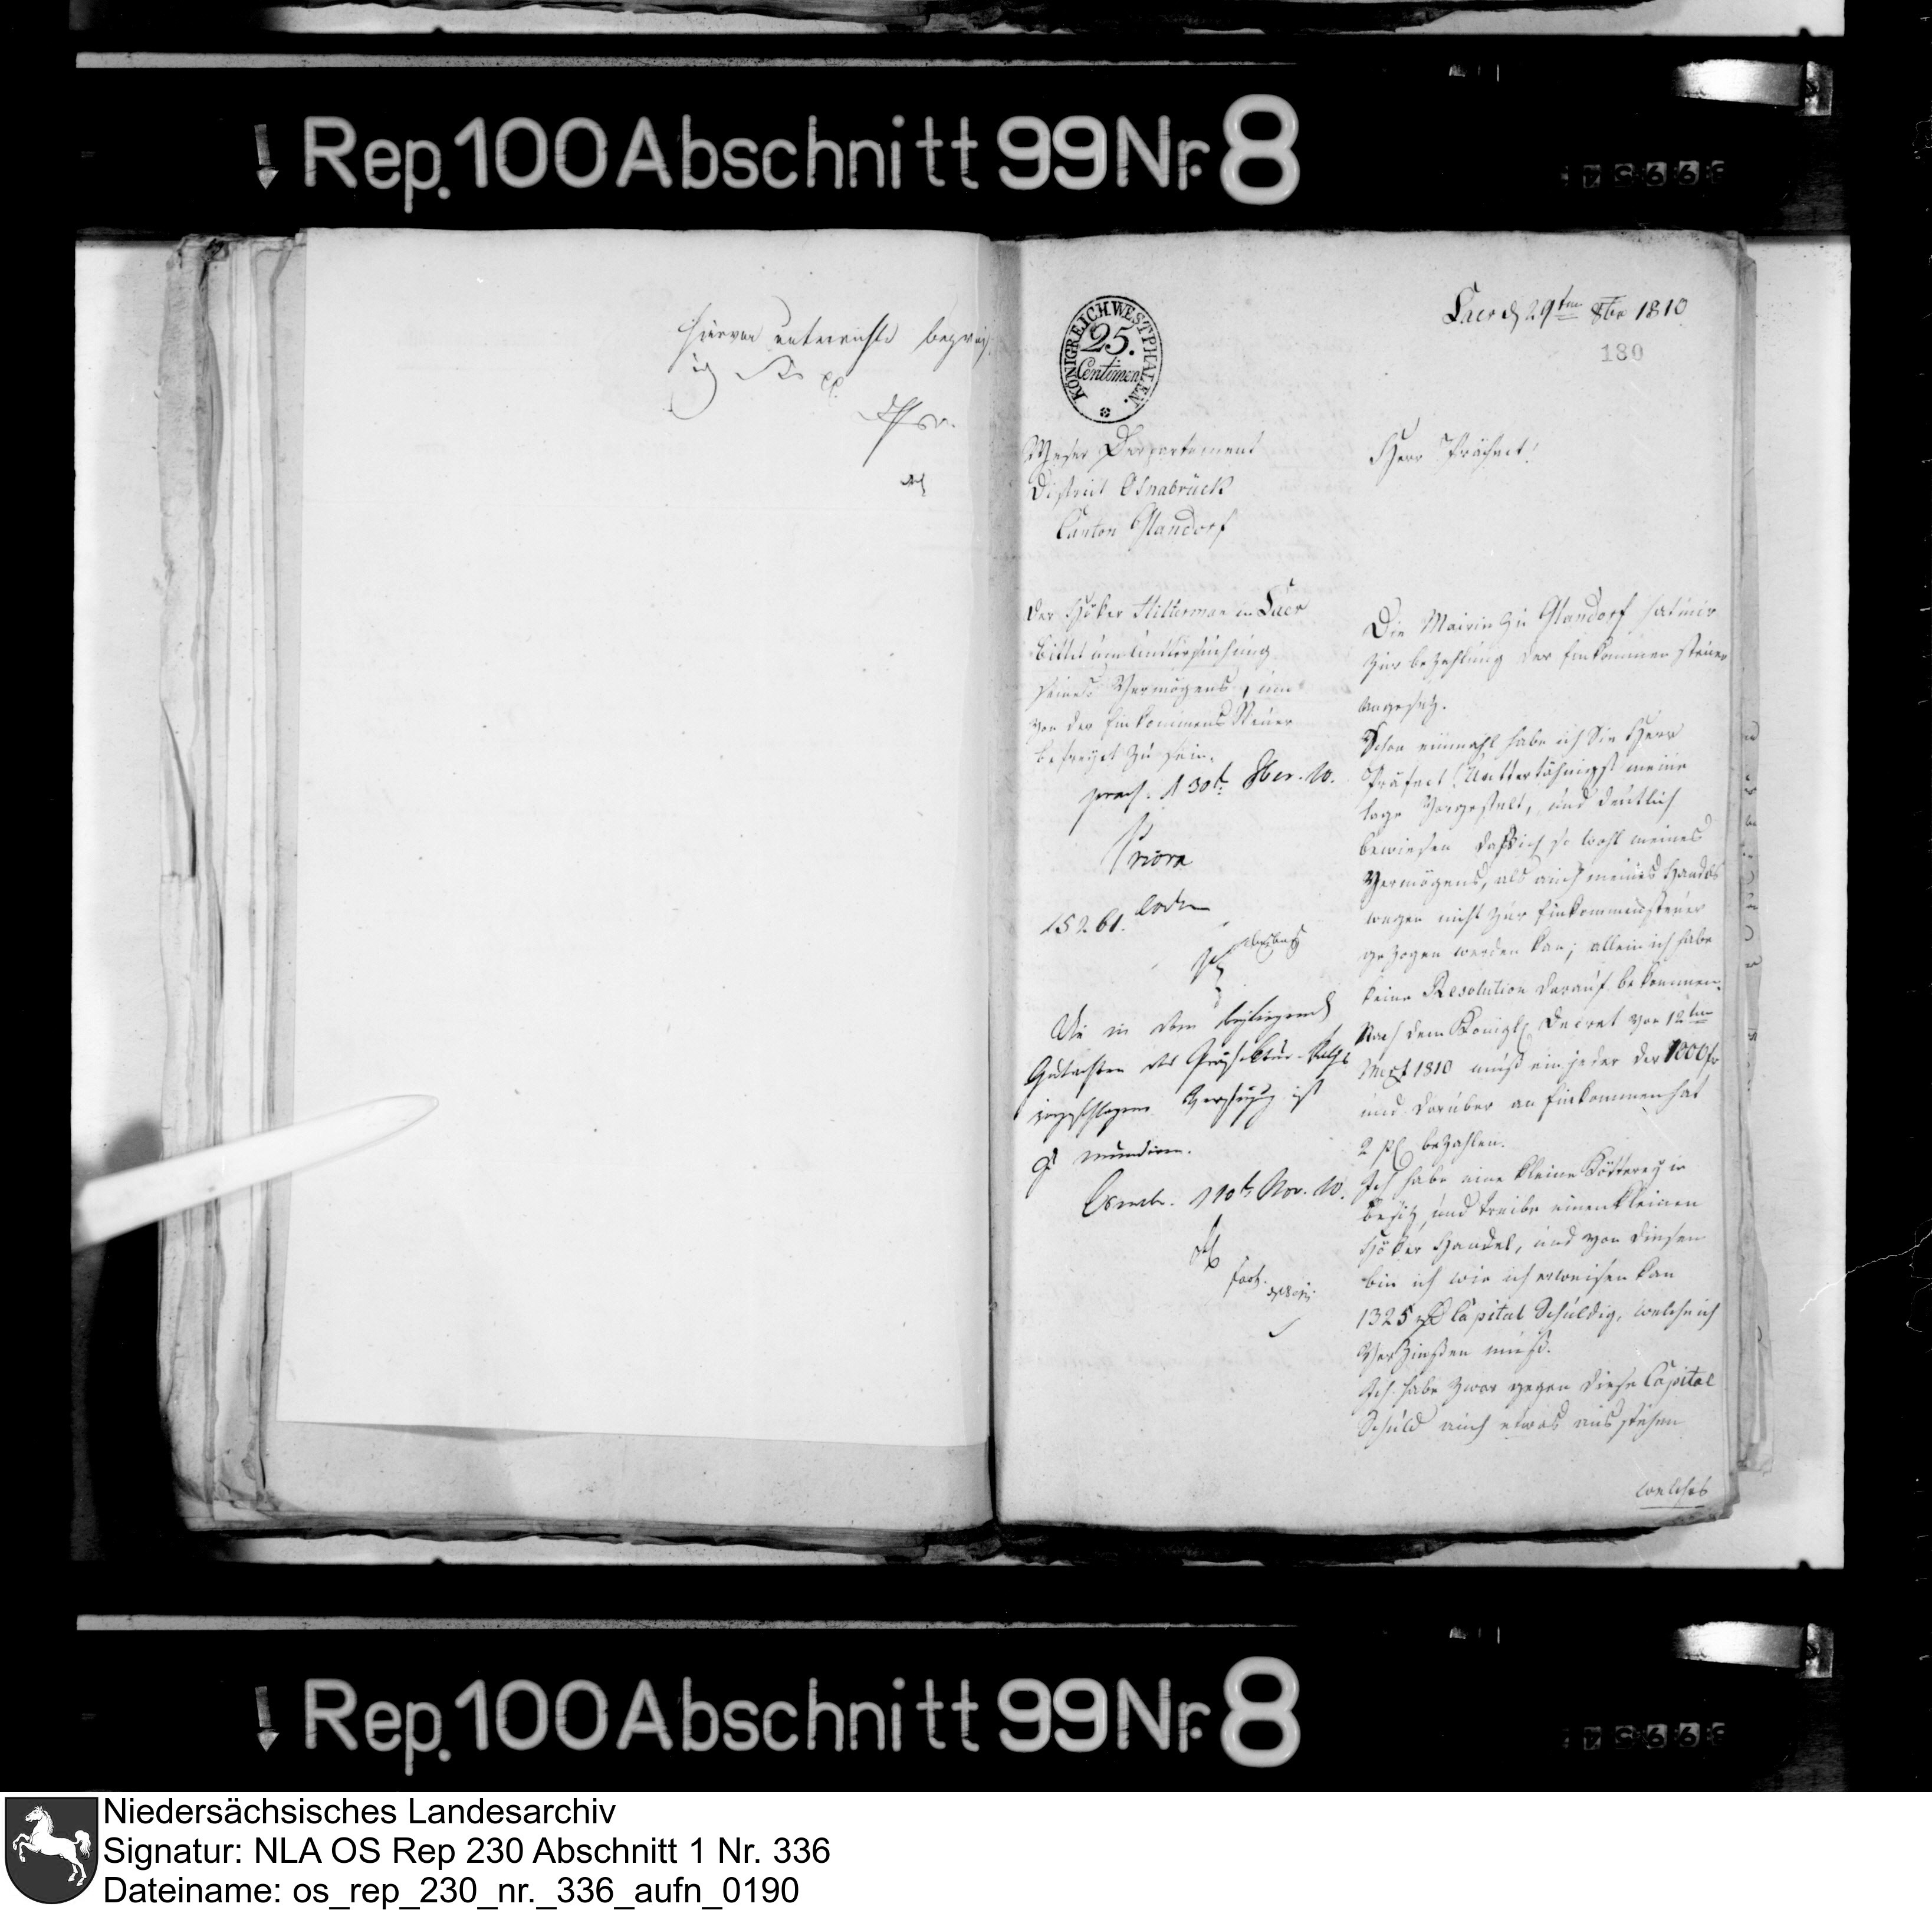 Rep. 100 Abschnitt 99 Nr. 8
Hiervon unterrichte
KÖNIGREICH WESTPHALEN.
25.
Centimen
Laer d 29ten 8br 1810
180
Weser Departement
District Osnabrück
Canton Glandorf
Herr Präfect!
Der Höker Hilterman in Laer
bittet um Untersuchung
seines Vermögens, um
von der Einkommens Steuer
befreyet zu sein.
praes. d 30t 8br. 10.
Priora
15261.
Die in dem beyliegend
Gutachten des Präfektur-Raths
vorgeschlagene Verfügung ist
zu mundiren.
Osnabr. d 10t Nov. 10.
Die Mairie zu Glandorf hat mir
zur bezahlung der Einkommen steuer
angesetz.
Schon einmahl habe ich Sie Herr
Präfect! Unttertähnigst meine
lage Vorgestelt, und deutlich
bewiesen daß ich so wohl meines
Vermögens, als auch meines Handels
wegen nicht zur Einkommensteuer
gezogen werden kan; allein ich habe
keine Resolution darauf bekommen.
Nach dem Königl Decret von 12ten
1810 muß ein jeder der 1000 fr
und darüber an Einkommen hat
2 bezahlen.
Ich habe eine kleine Kötterey in
besitz, und treibe einen kleinen
Höker Handel, und von diesen
bin ich wie ich erweisen kan
1325 Capital Schuldig, welche ich
Verzinßen muß.
Ich habe zwar gegen diese Capital
Schuld auch etwas ausstehen
welches
Rep. 100 Abschnitt 99 Nr. 8
Niedersächsisches Landesarchiv
Signatur: NLA OS Rep 230 Abschnitt 1 Nr. 336
Dateiname: os_rep_230_nr._336_aufn_0190